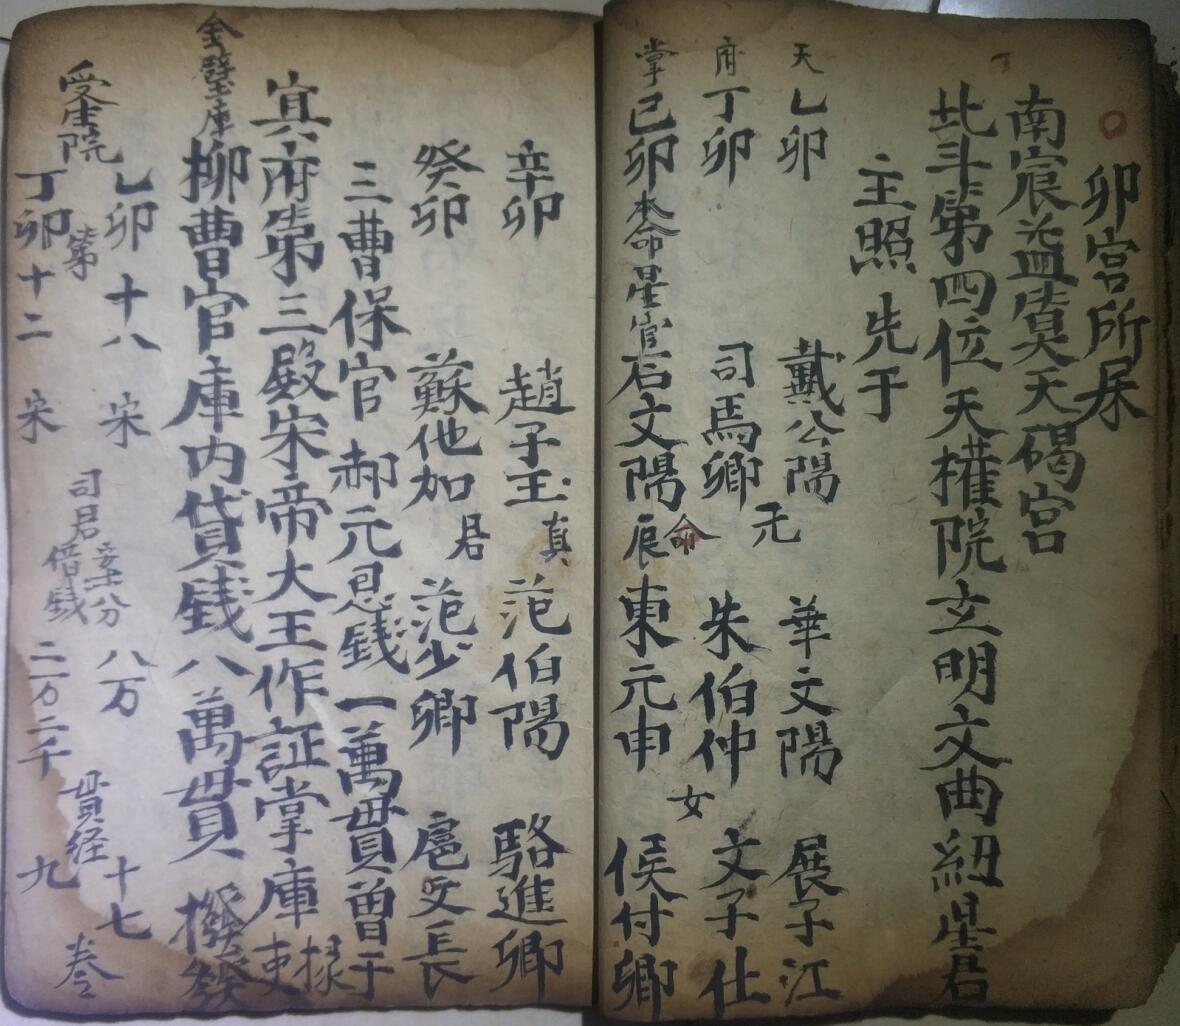 卯宫所屎
南宸益奠天碣宫
北斗第四位天權院玄明文曲紐星君
主照 先于
天 乙卯 戴公陽 華文陽 展子江
府 丁卯 司焉卿 无 朱伯仲 女 文子仕
掌 己卯 本命星官 石文陽 辰 命 東元申 侯付卿
辛卯 趙子玉 真 范伯陽 駱進卿
癸卯 蘇他加 君 范少卿 扈文長
三曹保官 郝元 恩錢一萬貫曾于
冥府第三殿宋帝大王作証掌庫
金璧庫 柳曹官庫内貸錢八萬貫 撥
乙卯 十八 宋 八万 十七
受生院 第 司君 借錢 貫経 卷
丁卯 十二 宋 二万二千 九